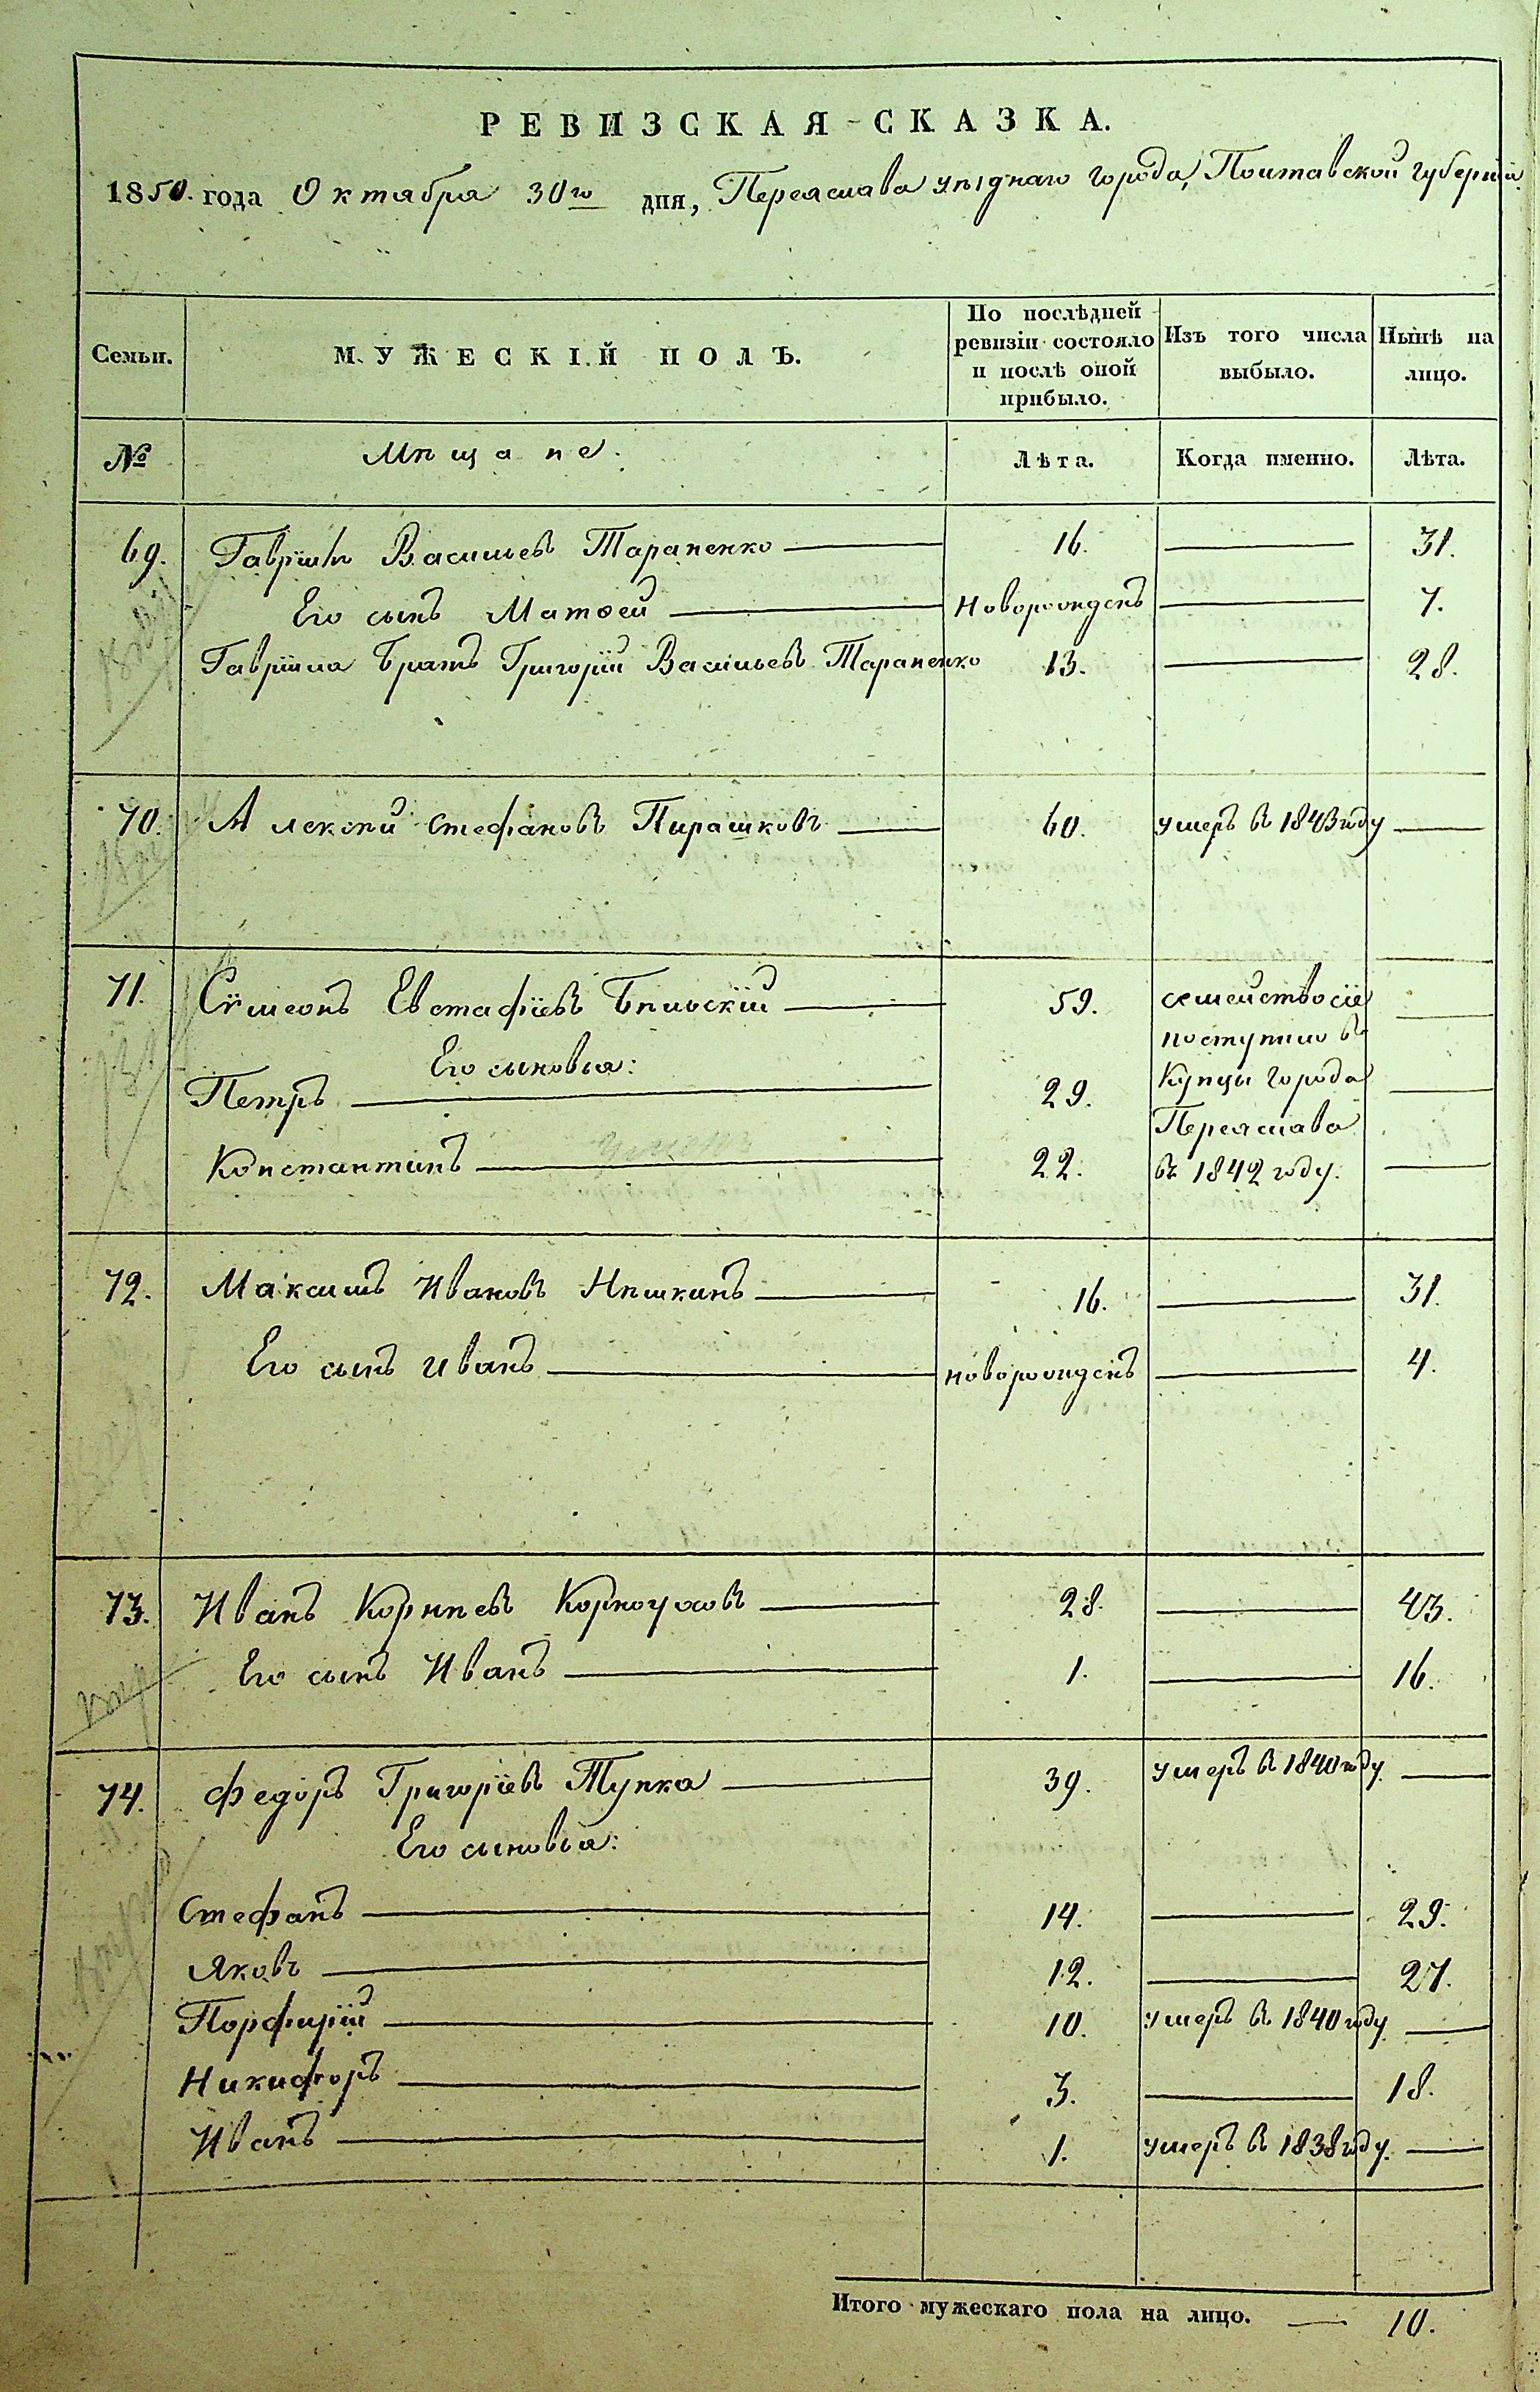 РЕВИЗСКАЯ СКАЗКА.
1850. года Октября 30го дня, Переяслава уѣзднаго города, Полтавской губерніи
Семьи. МУЖЕСКІЙ ПОЛЪ. По послѣдней ревизіи состояло и послѣ оной прибыло. Изъ того числа выбыло. Нынѣ на лицо.
№ Мѣщане. Лѣта. Когда именно. Лѣта.
69. Гавріилъ Васильевъ Тараненко 16. 31.
Его сынъ Матѳей Новорожденъ 7.
Гавріила братъ Григорій Васильевъ Тараненко 13. 28.
70. Алексѣй Стефановъ Пирашковъ 60. умеръ въ 1843 году
71. Сѵмеонъ Евстафіевъ Бѣльскій 59. семейство сіе
поступило въ
Его сыновья:
Петръ 29. Купцы города
Переяслава
Константинъ 22. въ 1842 году.
72. Максимъ Ивановъ Нѣшкинъ 16. 31.
Его сынъ Иванъ новорожденъ 4.
73. Иванъ Корнѣевъ Корноуховъ 28. 43.
Его сынъ Иванъ 1. 16.
74. Федоръ Григоріевъ Тупка 39. умеръ въ 1840 году.
Его сыновья:
Стефанъ 14. 29.
Яковъ 12. 27.
Порфирій 10. умеръ въ 1840 году
Никифоръ 3. 18.
Иванъ 1. умеръ въ 1838 году.
Итого мужескаго пола на лицо. 10.